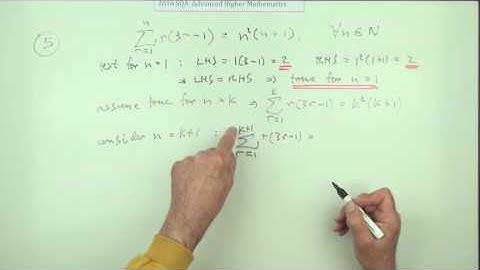 2016 SQA Advanced Higher Mathematics
5 n∑r=1 r(3r-1) = n²(n+1), ∀n∈N
test for n=1 : LHS = 1(3-1) = 2 RHS = 1²(1+1) = 2
⇒ LHS = RHS ⇒ true for n=1
assume true for n=k ⇒ k∑r=1 r(3r-1) = k²(k+1)
consider n=k+1 : k+1∑r=1 r(3r-1) =